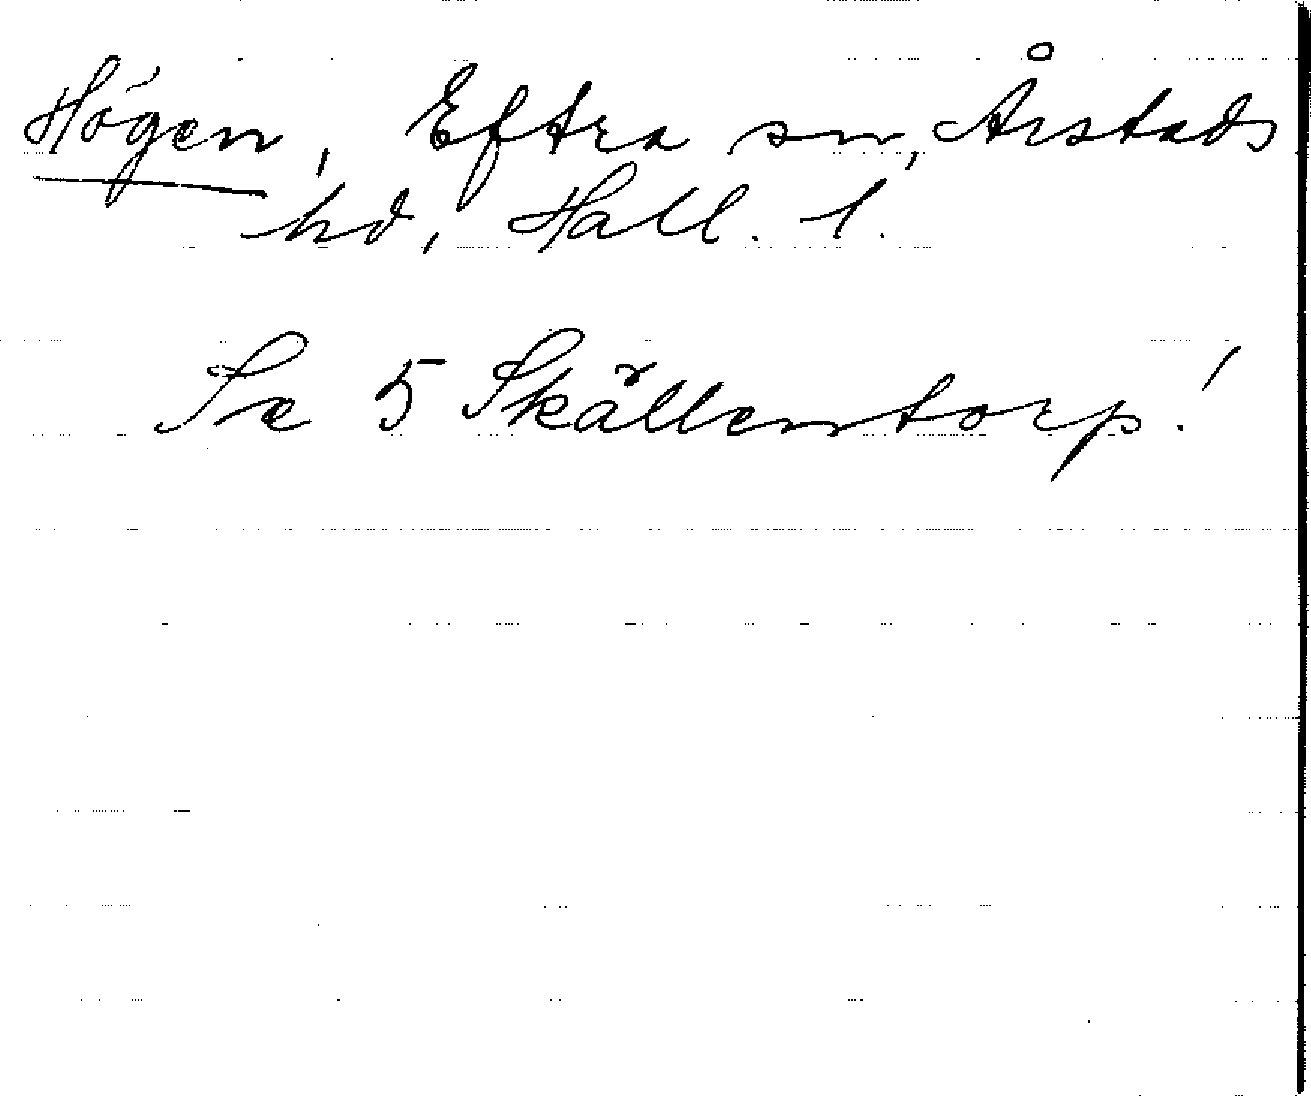 Högen, Eftra sn, Årstads
hd, Hall. l.
Se 5 Skällentorp!